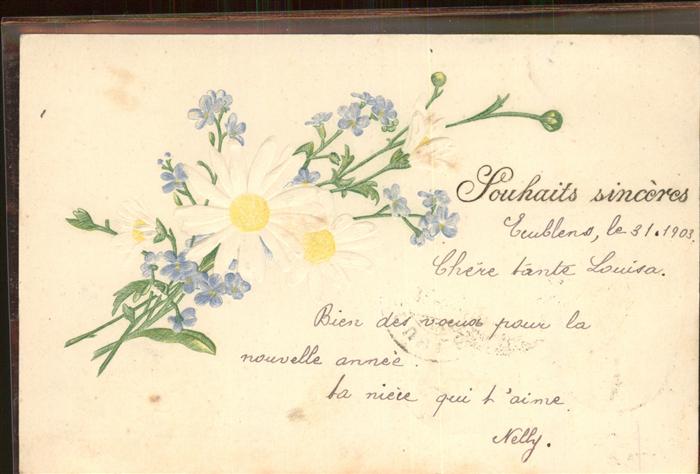 Souhaits sincères
Ecublens, le 31.1903.
Chère tante Louisa.
Bien des voeux pour la
nouvelle année.
ta nièce qui t'aime.
Nelly.